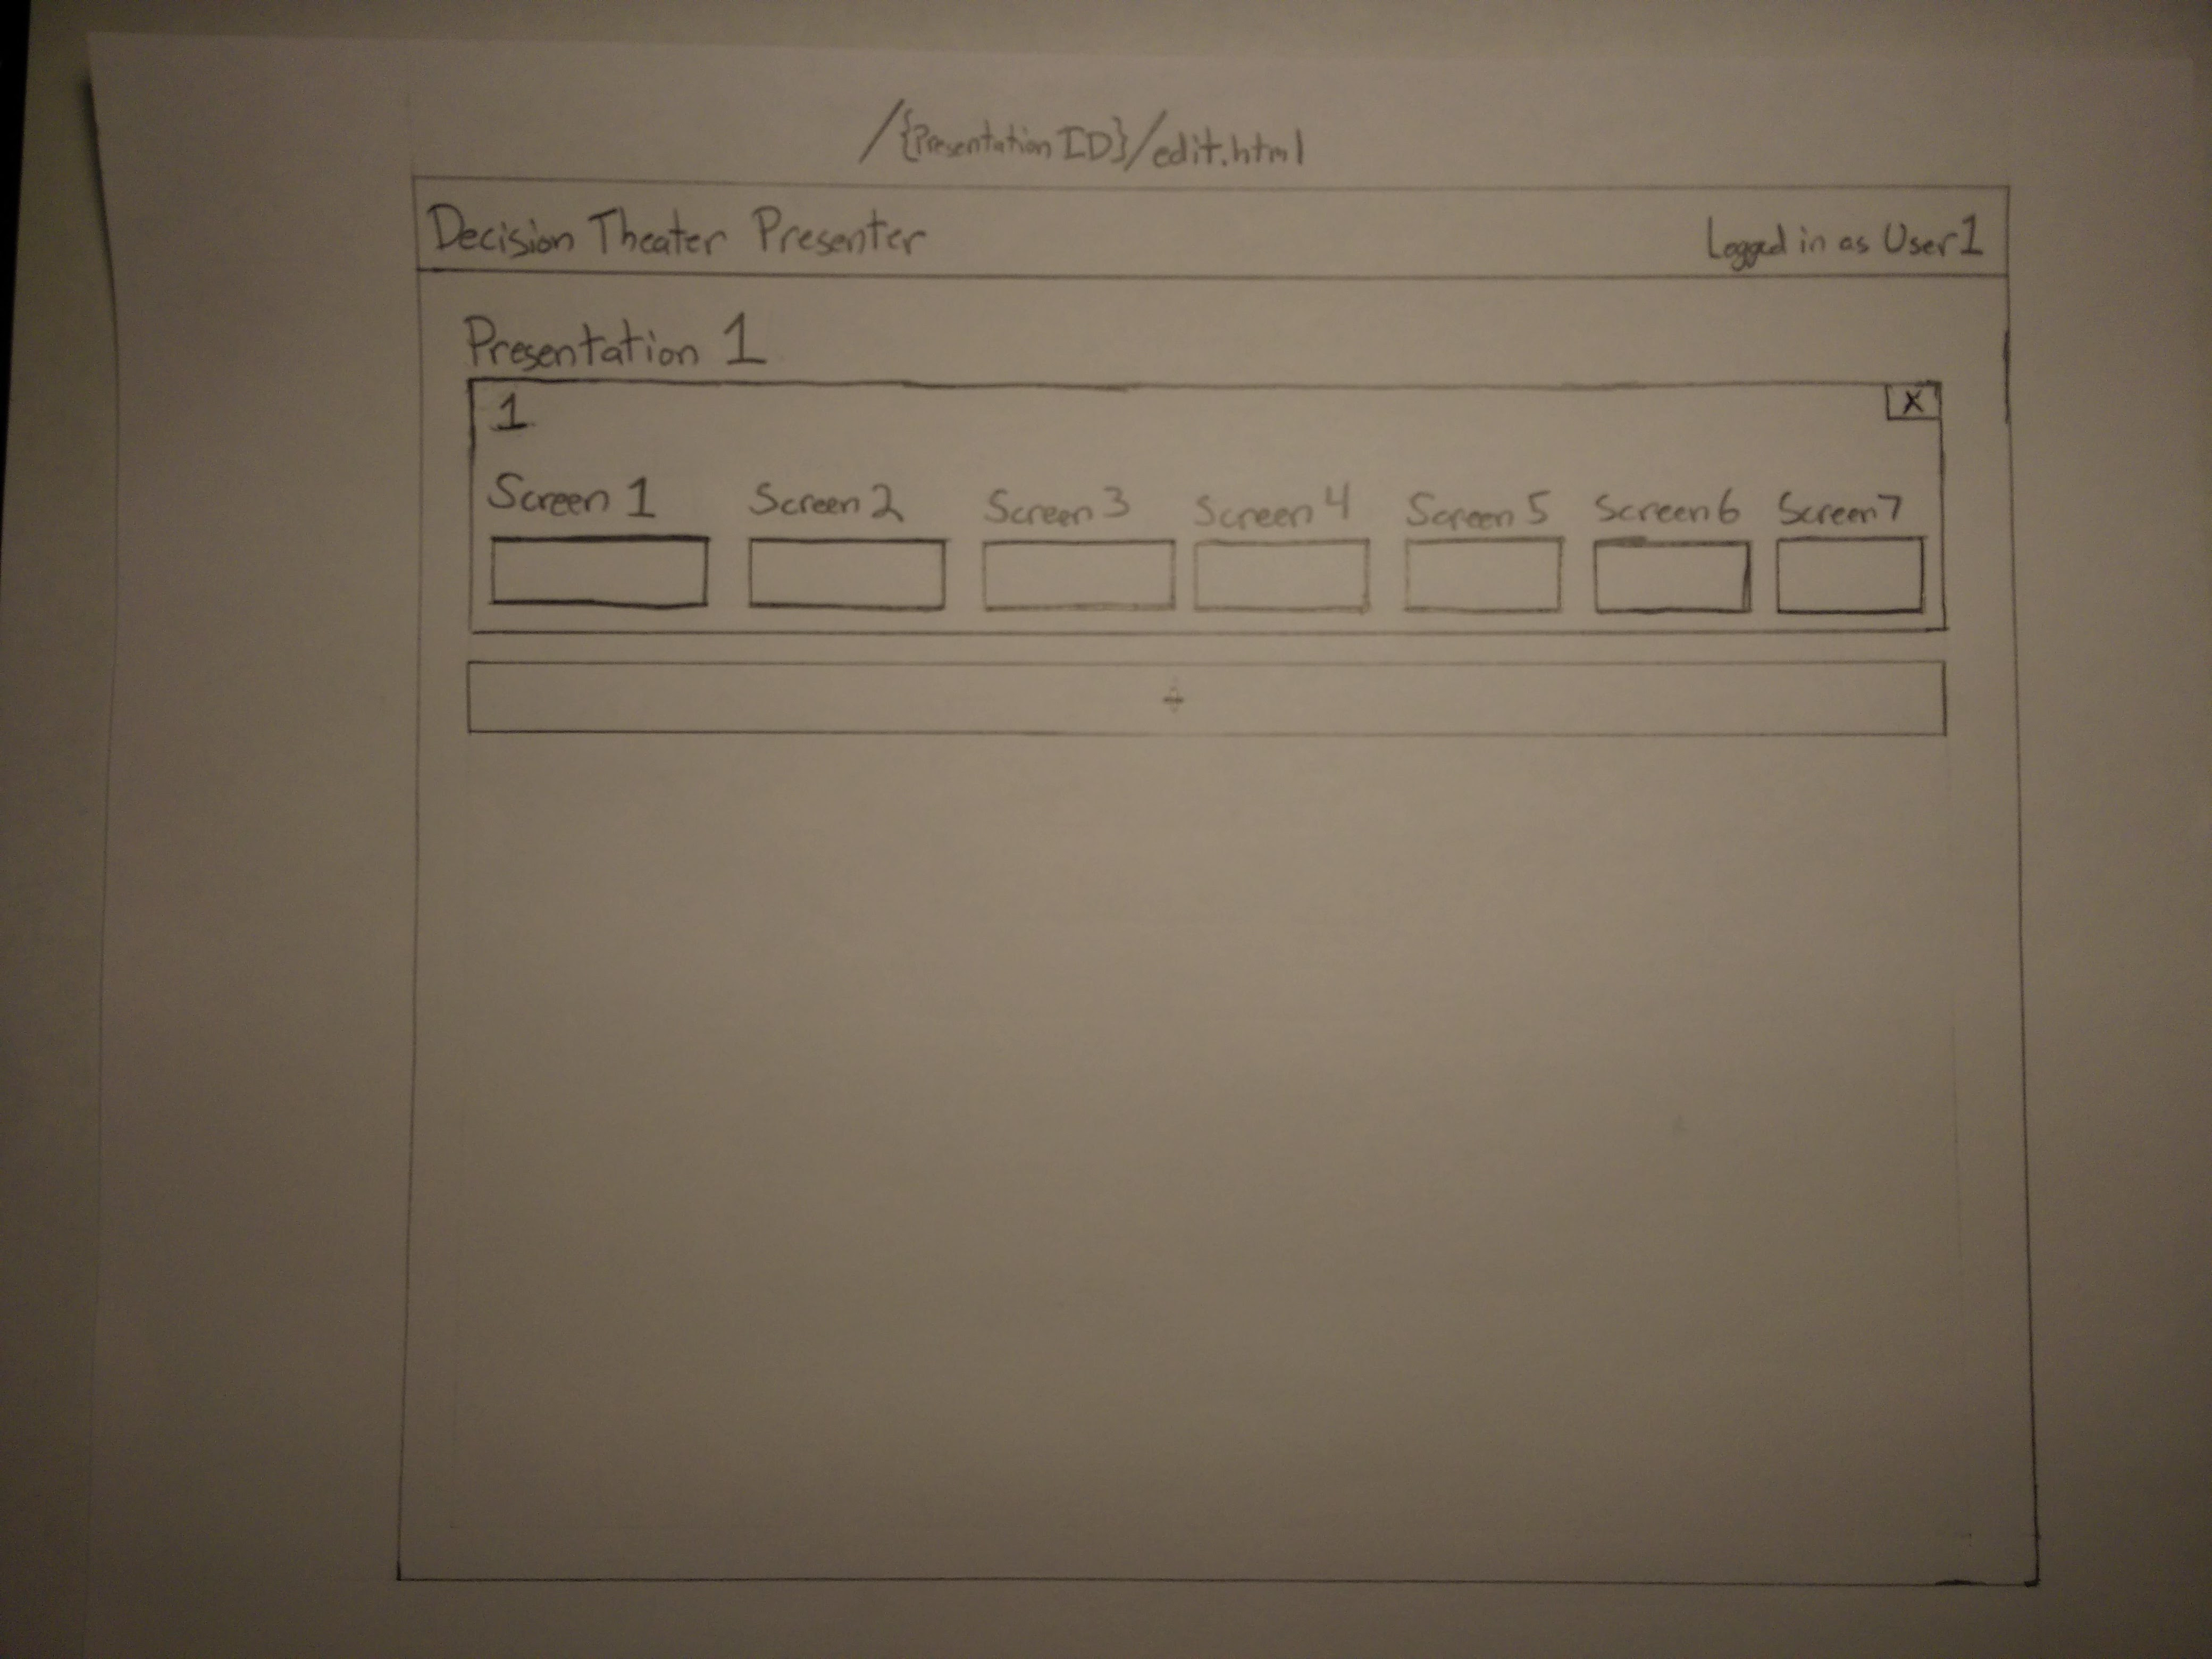 /{Presentation ID}/edit.html
Decision Theater Presenter Logged in as User 1
Presentation 1
1 X
Screen 1 Screen 2 Screen 3 Screen 4 Screen 5 Screen 6 Screen 7
+